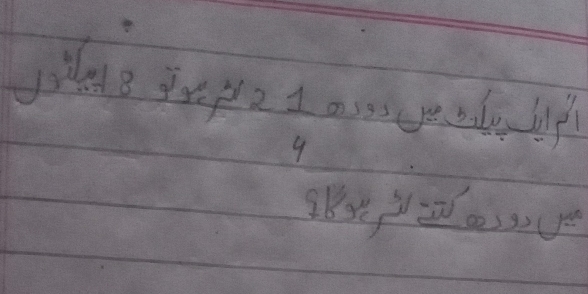 اگر ایک پیکٹ میں دودھ 2 1/4 لٹر ہو تو 8 پیکٹوں
میں دودھ کتنے لٹر ہوگا؟